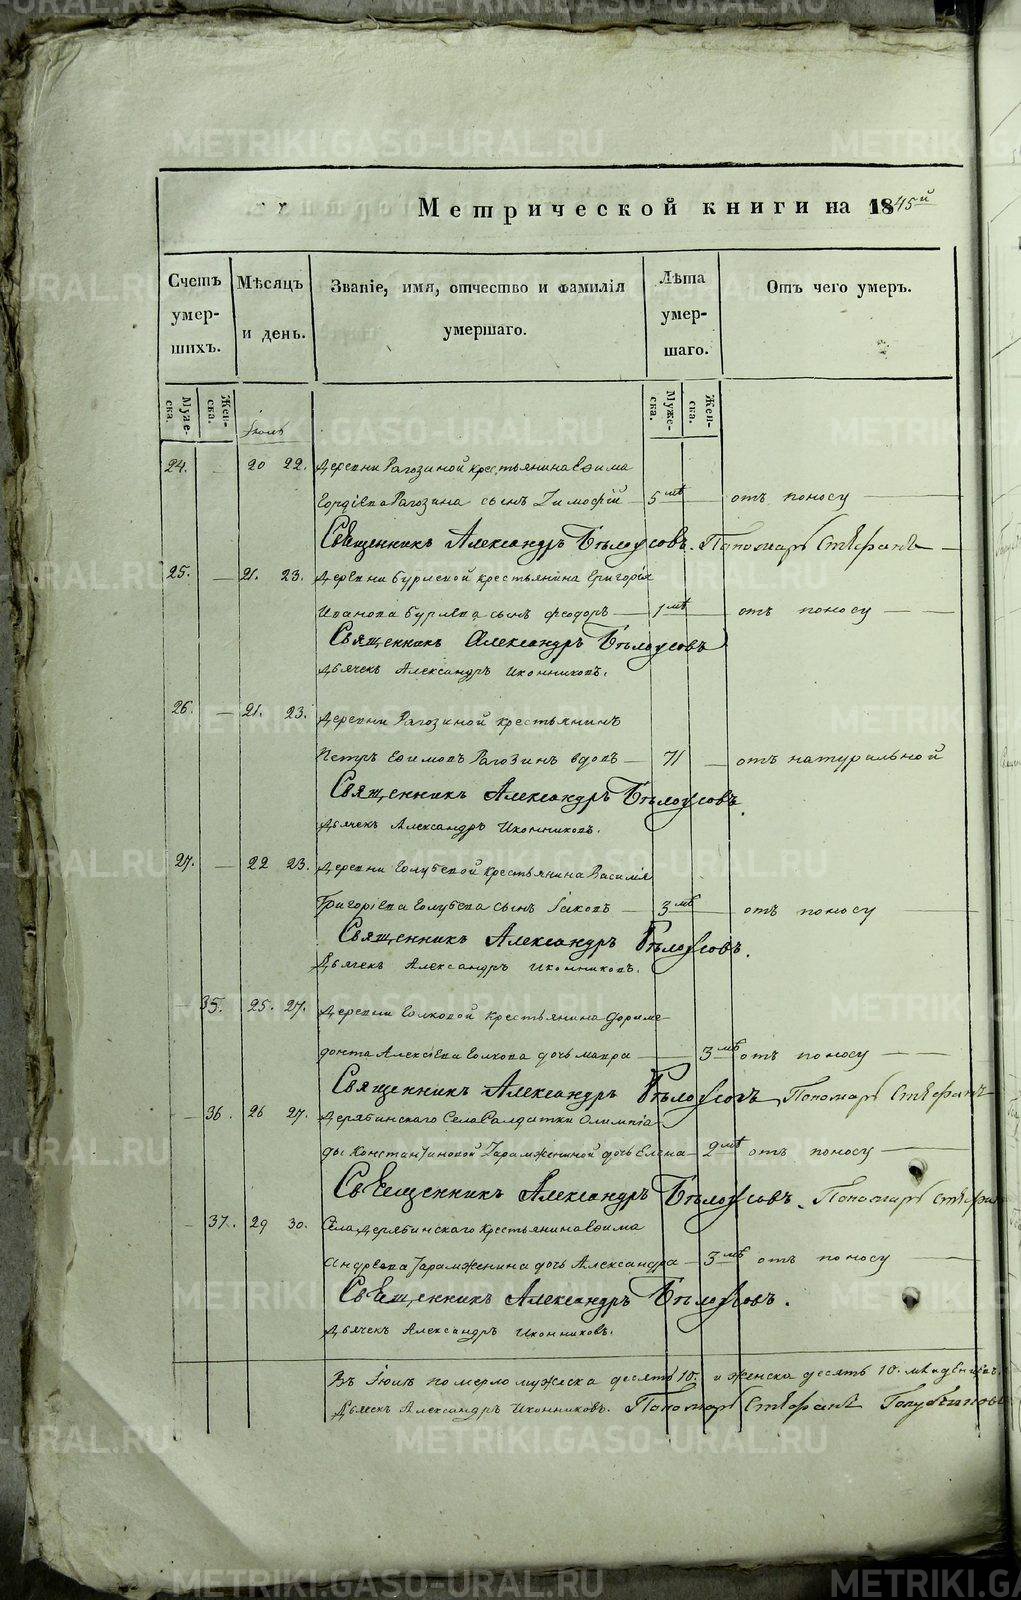 Метрической книги на 1845й
Счетъ умер- шихъ.
Мѣсяцъ и день.
Званіе, имя, отчество и фамилія умершаго.
Лѣта умер- шаго.
Отъ чего умеръ.
Муже- ска.
Жен- ска.
Муже- ска.
Жен- ска.
Іюль
24. — 20 22. Деревни Рагозиной крестьянина Ефима
Гордѣева Рагозина сынъ Тимофѣй — 5 мѣ — отъ поносу —
Священникъ Александръ Бѣлоусовъ. Пономарь Стефанъ
25. — 21. 23. Деревни Бурлевой крестьянина Григорія
Иванова Бурлева сынъ Феодоръ — 1 мѣ — отъ поносу —
Священникъ Александръ Бѣлоусовъ
Дьячекъ Александръ Иконниковъ.
26. — 21. 23. Деревни Рагозиной крестьянинъ
Петръ Ефимовъ Рагозинъ вдовъ — 71 — отъ натуральной
Священникъ Александръ Бѣлоусовъ.
Дьячекъ Александръ Иконниковъ.
27. — 22 23. Деревни Голубевой крестьянина Василія
Григоріева Голубева сынъ Іаковъ — 3 мѣ — отъ поносу
Священникъ Александръ Бѣлоусовъ.
Дьячекъ Александръ Иконниковъ.
— 35. 25. 27. Деревни Волковой крестьянина Дориме-
донта Алексѣева Волкова дочь Мавра — 3 мѣ отъ поносу —
Священникъ Александръ Бѣлоусовъ, Пономарь Стефанъ
— 36. 26 27. Дерябинскаго Села Салдатки Олимпіа-
ды Константиновой Тарамжениной дочь Елена — 2 мѣ отъ поносу —
Священникъ Александръ Бѣлоусовъ. Пономарь Стефанъ
— 37. 29 30. Села Дерябинскаго крестьянина Ефима
Андрѣева Тарамженина дочь Александра — 3 мѣ отъ поносу —
Священникъ Александръ Бѣлоусовъ.
Дьячекъ Александръ Иконниковъ.
Въ Іюлѣ померло мужеска десять 10. и женска десять 10.
Дьячекъ Александръ Иконниковъ. Пономарь Стефанъ
METRIKI.GASO-URAL.RU